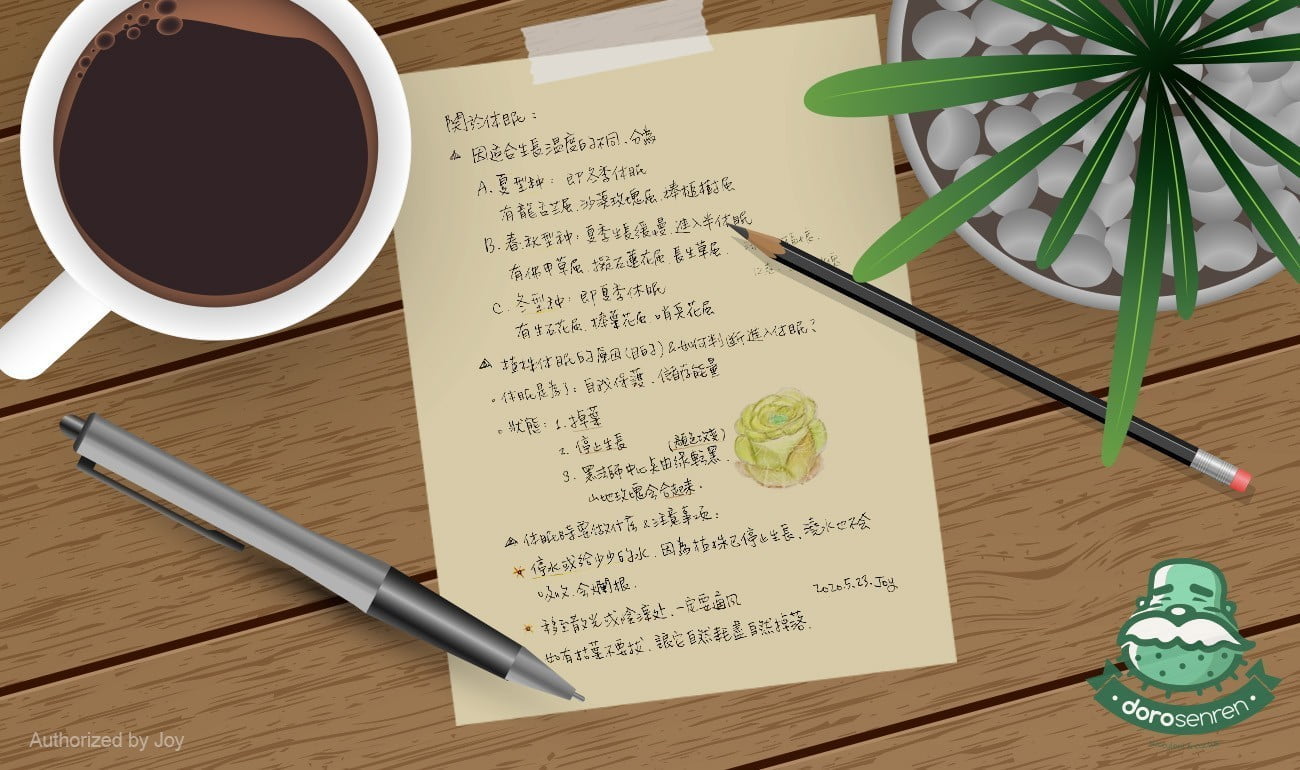 關於休眠：
因適合生長溫度的不同，分為
A. 夏型种：即冬季休眠
有龍舌兰屬、沙漠玫瑰屬、棒槌樹屬
B. 春秋型种：夏季生長緩慢，進入半休眠
有伽甲草屬、擬石蓮花屬、長生草屬
C. 冬型种：即夏季休眠
有生石花屬、棒葉花屬、哨兵花屬
植株休眠的原因(目的)&如何判断進入休眠？
休眠是為了：自我保護、儲存能量
狀態：1. 掉葉
2. 停止生長
(顏色改变)
3. 黑法師中心点由綠転黑.
山地玫瑰会合起来.
休眠時要做什么&注意事项：
停水或給少少的水，因為植株已停止生長，澆水也不会
吸收，会爛根.
2020.5.23. Joy
移至散光或陰涼处，一定要通风
如有枯葉不要拔，讓它自然耗盡自然掉落.
dorosenren
Authorized by Joy